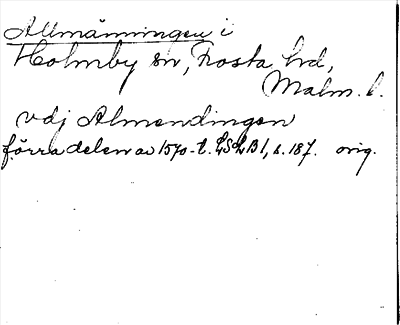 Allmänningen i
Holmby sn, Frosta hrd,
Malm. l.
vdj Almendingen
förra delen av 1570-t. LSLB 1, s. 187. orig.